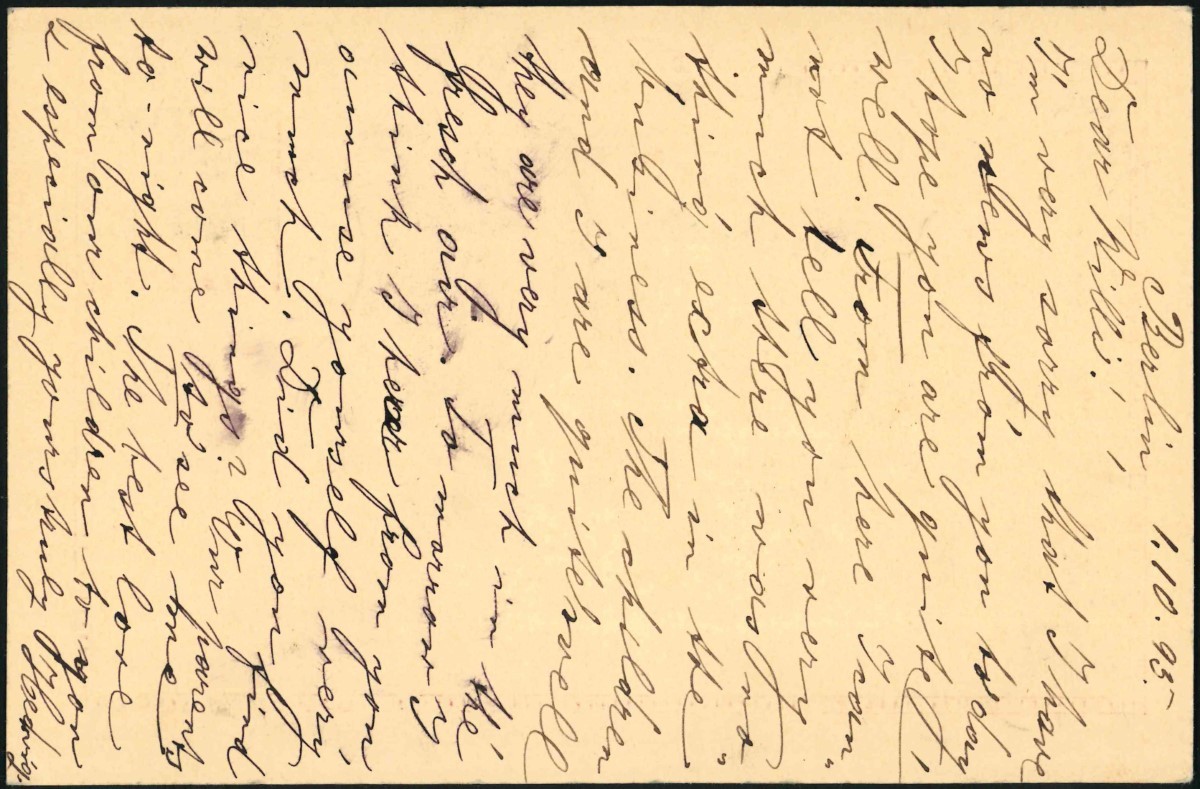 Berlin. 1.10.95.
Dear Willi!
I'm very sorry that I have
no news from you to day
I hope you are quite
well. From here I can
not tell you very
much there was no
thing extra in the
business. The children
and I are quite well
they are very much in the
fresh air. to morrow I
think I hear from you
amuse yourself you
much. Did you find
nice things? Your parents
will come to see me
to-night. The best love
from our children to you
& especially yours truly Hedwig.